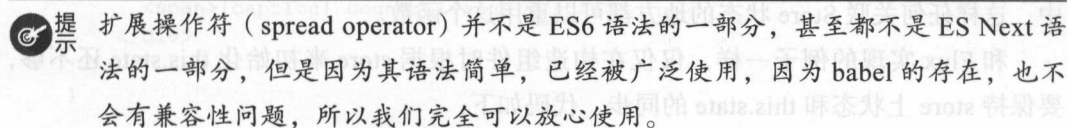 提示 扩展操作符（spread operator）并不是 ES6 语法的一部分，甚至都不是 ES Next 语
法的一部分，但是因为其语法简单，已经被广泛使用，因为 babel 的存在，也不
会有兼容性问题，所以我们完全可以放心使用。